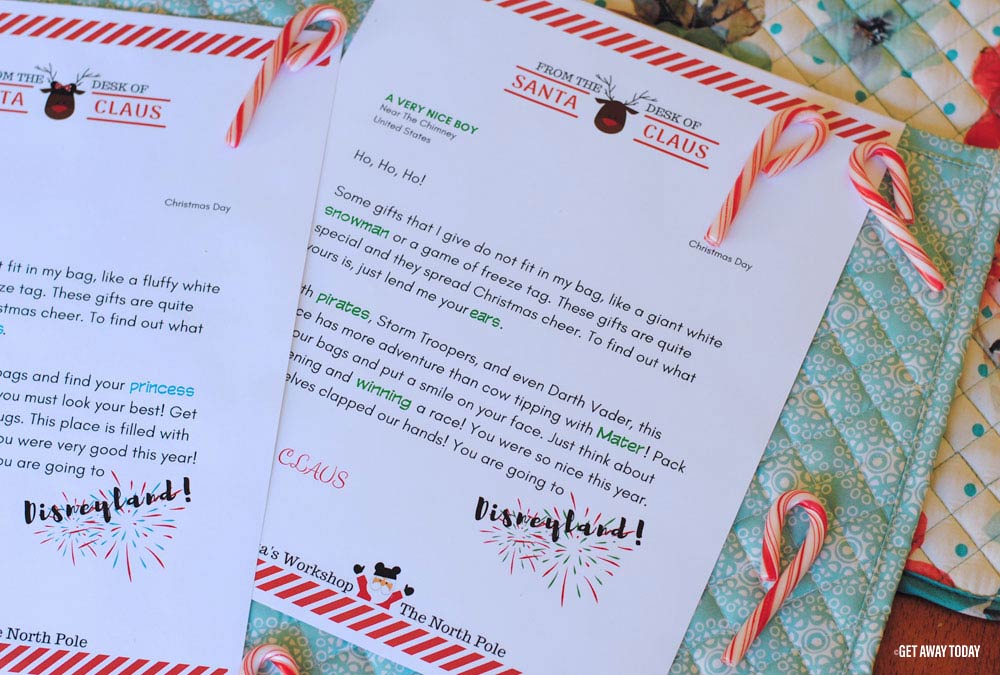 FROM THE DESK OF
CLAUS
Christmas Day
fit in my bag, like a fluffy white
freeze tag. These gifts are quite
cheer. To find out what
bags and find your princess
you must look your best! Get
This place is filled with
you were very good this year!
you are going to
Disneyland!
The North Pole
FROM THE DESK OF
SANTA CLAUS
A VERY NICE BOY
Near The Chimney
United States
Christmas Day
Ho, Ho, Ho!
Some gifts that I give do not fit in my bag, like a giant white
snowman or a game of freeze tag. These gifts are quite
special and they spread Christmas cheer. To find out what
yours is, just lend me your ears.
pirates, Storm Troopers, and even Darth Vader, this
has more adventure than cow tipping with Mater! Pack
your bags and put a smile on your face. Just think about
and winning a race! You were so nice this year.
elves clapped our hands! You are going to
Disneyland!
CLAUS
Workshop The North Pole
©GET AWAY TODAY